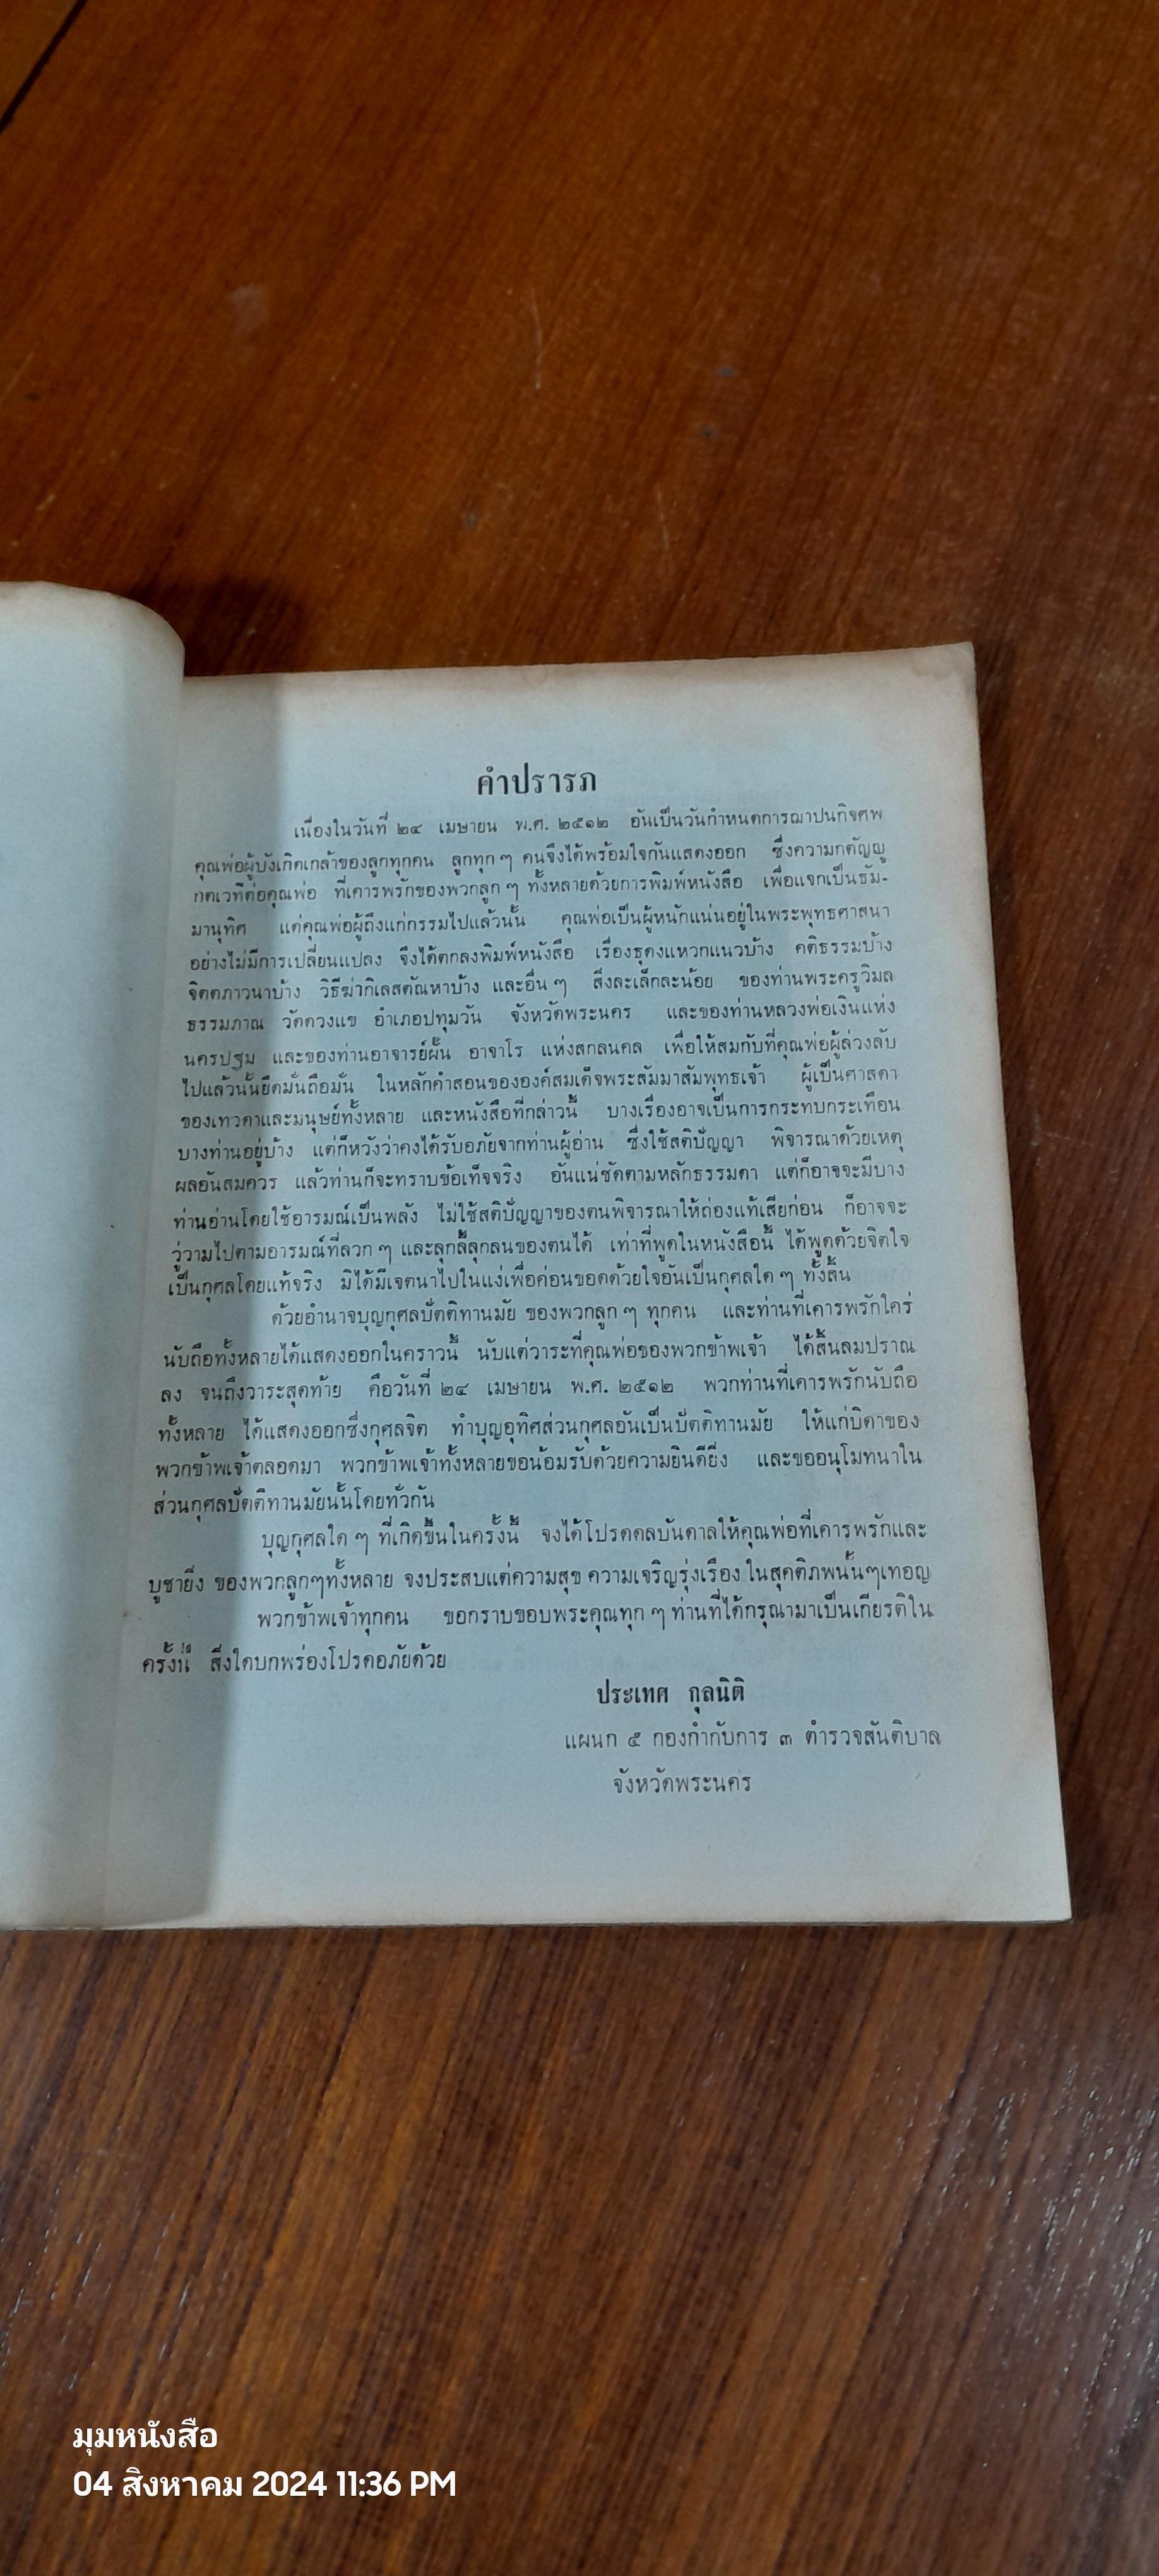 คำปรารภ
เนื่องในวันที่ ๒๔ เมษายน พ.ศ. ๒๕๑๒ อันเป็นวันกำหนดการฌาปนกิจศพ
คุณพ่อผู้บังเกิดเกล้าของลูกทุกคน ลูกทุก ๆ คนจึงได้พร้อมใจกันแสดงออก ซึ่งความกตัญญู
กตเวทีต่อคุณพ่อ ที่เคารพรักของพวกลูก ๆ ทั้งหลายด้วยการพิมพ์หนังสือ เพื่อแจกเป็นธัม-
มานุทิศ แด่คุณพ่อผู้ถึงแก่กรรมไปแล้วนั้น คุณพ่อเป็นผู้หนักแน่นอยู่ในพระพุทธศาสนา
อย่างไม่มีการเปลี่ยนแปลง จึงได้ตกลงพิมพ์หนังสือ เรื่องธุดงแหวกแนวบ้าง คติธรรมบ้าง
จิตตภาวนาบ้าง วิธีฆ่ากิเลสตัณหาบ้าง และอื่น ๆ สิ่งละเล็กละน้อย ของท่านพระครูวิมล
ธรรมภาณ วัดดวงแข อำเภอปทุมวัน จังหวัดพระนคร และของท่านหลวงพ่อเงินแห่ง
นครปฐม และของท่านอาจารย์ฝั้น อาจาโร แห่งสกลนคล เพื่อให้สมกับที่คุณพ่อผู้ล่วงลับ
ไปแล้วนั้นยึดมั่นถือมั่น ในหลักคำสอนขององค์สมเด็จพระสัมมาสัมพุทธเจ้า ผู้เป็นศาสดา
ของเทวดาและมนุษย์ทั้งหลาย และหนังสือที่กล่าวนี้ บางเรื่องอาจเป็นการกระทบกระเทือน
บางท่านอยู่บ้าง แต่ก็หวังว่าคงได้รับอภัยจากท่านผู้อ่าน ซึ่งใช้สติปัญญา พิจารณาด้วยเหตุ
ผลอันสมควร แล้วท่านก็จะทราบข้อเท็จจริง อันแน่ชัดตามหลักธรรมดา แต่ก็อาจจะมีบาง
ท่านอ่านโดยใช้อารมณ์เป็นพลัง ไม่ใช้สติปัญญาของตนพิจารณาให้ถ่องแท้เสียก่อน ก็อาจจะ
วู่วามไปตามอารมณ์ที่ลวก ๆ และลุกลี้ลุกลนของตนได้ เท่าที่พูดในหนังสือนี้ ได้พูดด้วยจิตใจ
เป็นกุศลโดยแท้จริง มิได้มีเจตนาไปในแง่เพื่อค่อนขอดด้วยใจอันเป็นกุศลใด ๆ ทั้งสิ้น
ด้วยอำนาจบุญกุศลปัตติทานมัย ของพวกลูก ๆ ทุกคน และท่านที่เคารพรักใคร่
นับถือทั้งหลายได้แสดงออกในคราวนี้ นับแต่วาระที่คุณพ่อของพวกข้าพเจ้า ได้สิ้นลมปราณ
ลง จนถึงวาระสุดท้าย คือวันที่ ๒๔ เมษายน พ.ศ. ๒๕๑๒ พวกท่านที่เคารพรักนับถือ
ทั้งหลาย ได้แสดงออกซึ่งกุศลจิต ทำบุญอุทิศส่วนกุศลอันเป็นปัตติทานมัย ให้แก่บิดาของ
พวกข้าพเจ้าตลอดมา พวกข้าพเจ้าทั้งหลายขอน้อมรับด้วยความยินดียิ่ง และขออนุโมทนาใน
ส่วนกุศลปัตติทานมัยนั้นโดยทั่วกัน
บุญกุศลใด ๆ ที่เกิดขึ้นในครั้งนี้ จงได้โปรดดลบันดาลให้คุณพ่อที่เคารพรักและ
บูชายิ่ง ของพวกลูกๆทั้งหลาย จงประสบแต่ความสุข ความเจริญรุ่งเรือง ในสุคติภพนั้นๆเทอญ
พวกข้าพเจ้าทุกคน ขอกราบขอบพระคุณทุก ๆ ท่านที่ได้กรุณามาเป็นเกียรติใน
ครั้งนี้ สิ่งใดบกพร่องโปรดอภัยด้วย
ประเทศ กุลนิติ
แผนก ๕ กองกำกับการ ๓ ตำรวจสันติบาล
จังหวัดพระนคร
มุมหนังสือ
04 สิงหาคม 2024 11:36 PM